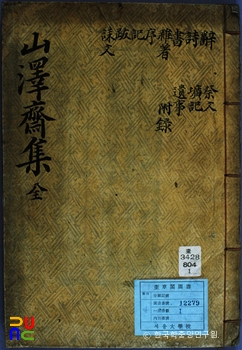 山澤齋集 全
辭
詩
書
雜著
序
記
跋
誄文
祭文
壙記
遺事
附錄
奎
3428
804
1
奎章閣圖書
12279
1
서울大學校
규장각한국학연구원